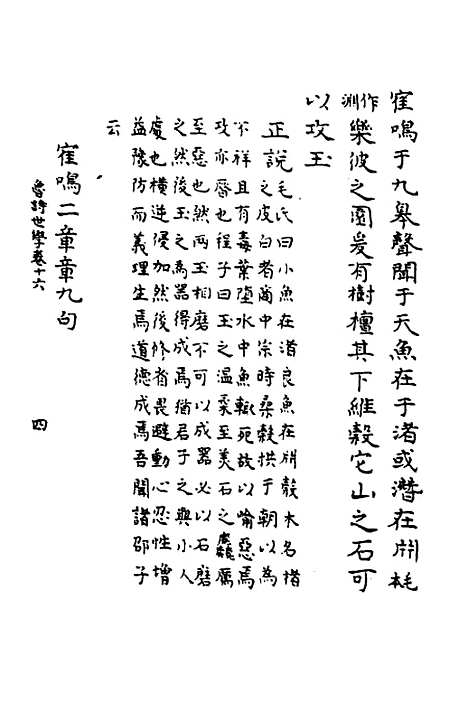 隺鳴于九皋聲聞于天魚在于渚或潛在㓎耗
作㓎樂彼之園爰有樹檀其下維榖它山之石可
以攻玉
正說毛氏曰小魚在渚良魚在㓎榖木名楮
之皮白者商中宗時桑榖拱于朝以為
不祥且有毒葉墮水中魚輙死故以喻惡焉
攻亦磨也程子曰玉之溫柔至美石之麤厲
至惡也然两玉相磨不可以成器必以石磨
之然後玉之為器得成焉猶君子之與小人
處也橫逆侵加然後修省畏避動心忍性增
益豫防而義理生焉道德成焉吾聞諸邵子
云
隺鳴二章章九句
魯詩世學卷十六
四